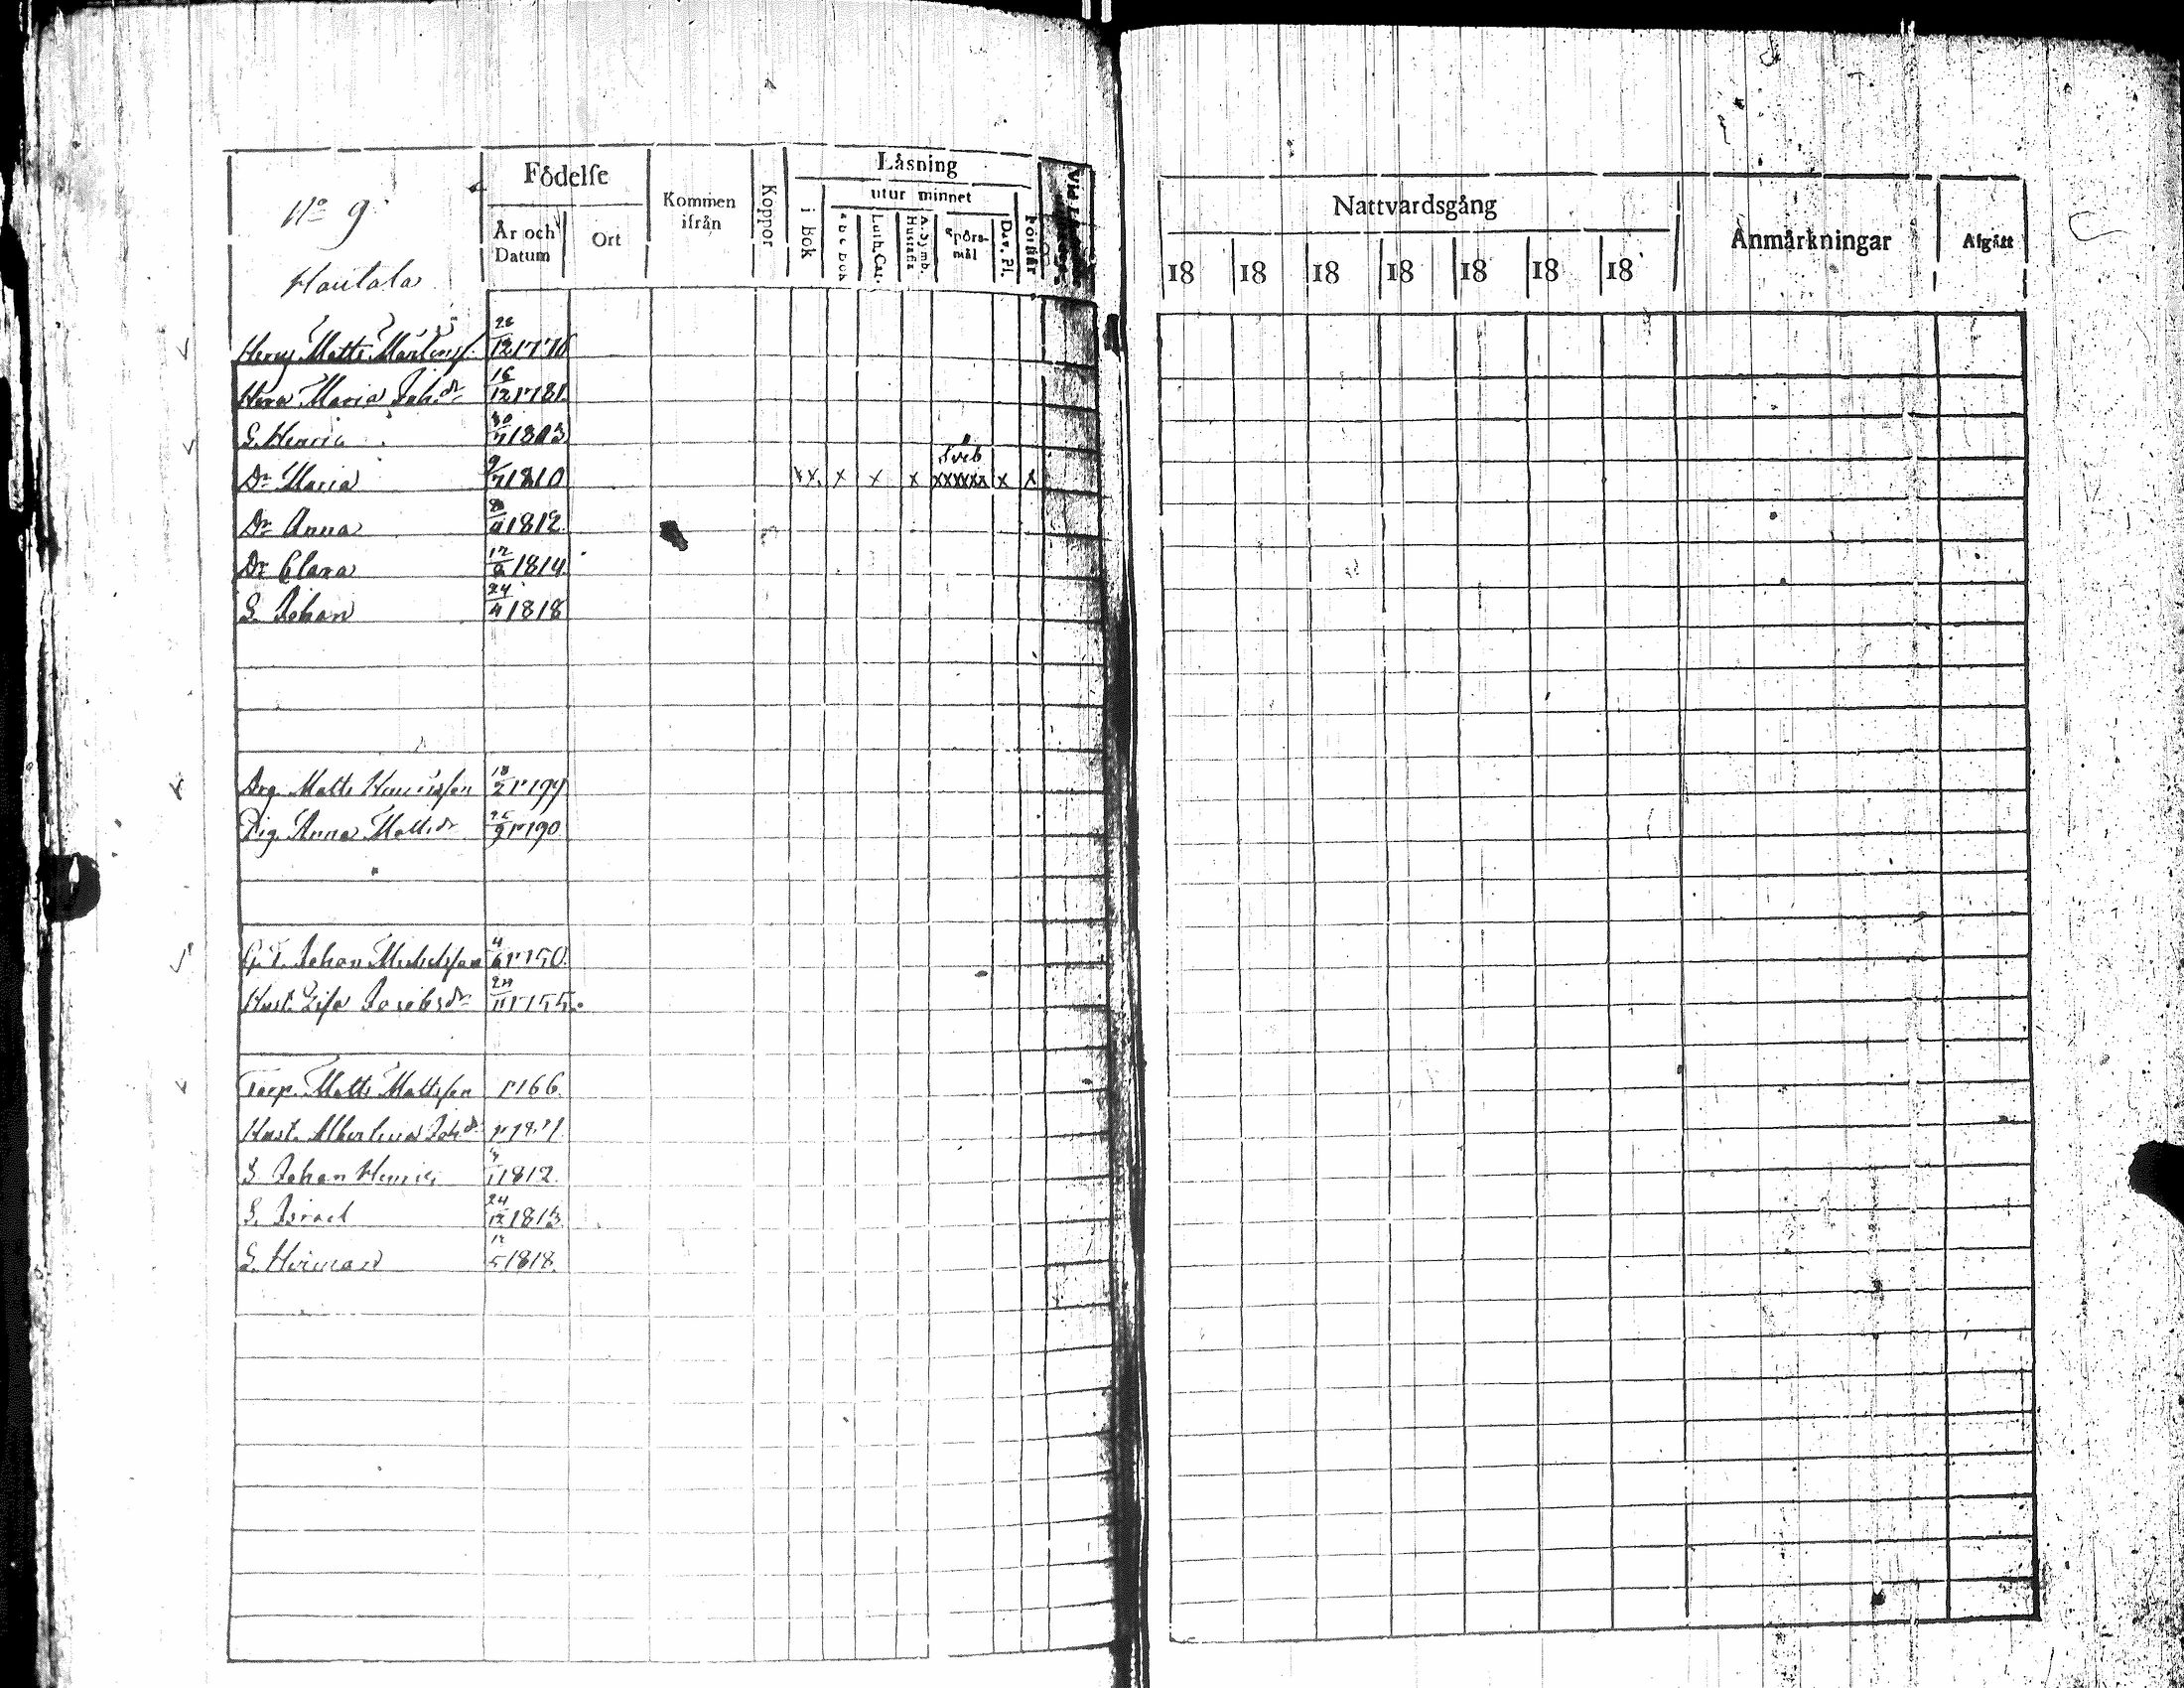 No 9
Hautala
Födelse
År och Datum
Ort
Kommen ifrån
Koppor
Läsning
i bok
utur minnet
a b c bok
Luth. Cat.
A. Symb. Hustafla
Spörs-mål
Dav. Ps.
Förstår
Matts 26/12
Maria Joh.dr 16/12 1781.
S. Henric 30/7 1803
Sveb
Dr Maria 9/7 1810 xx. x x x xxxxxx x x
Dr Anna 1812.
Dr Clara 1814.
S. Johan 24/4 1818
Drg. Matts Henricsson
Pig. Anna Matts.dr 1790.
G. T. Johan Michelsson 4/6 1750.
Hust. Lisa Jacobsdr 1755.
Torp. Matts Mattsson 1766.
Hust. Albertina Joh.dr
S. Johan Henric 1812.
S. Israel 24/12 1813
S. Herman 1818.
Nattvardsgång
18 18 18 18 18 18 18
Anmärkningar
Afgått